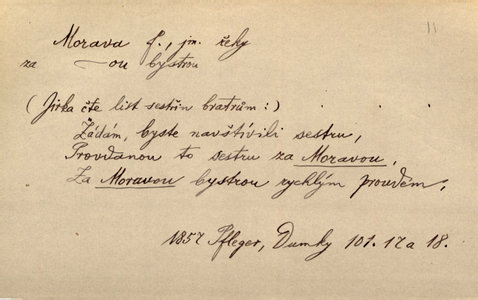 11
Morava f., jm. řeky
za —ou bystrou
(Jirka čte list sestřin bratrům:)
Žádám, byste navštívili sestru,
Provdanou to sestru za Moravou,
Za Moravou bystrou rychlým proudem,
1857 Pfleger, Dumky 101. 17 a 18.